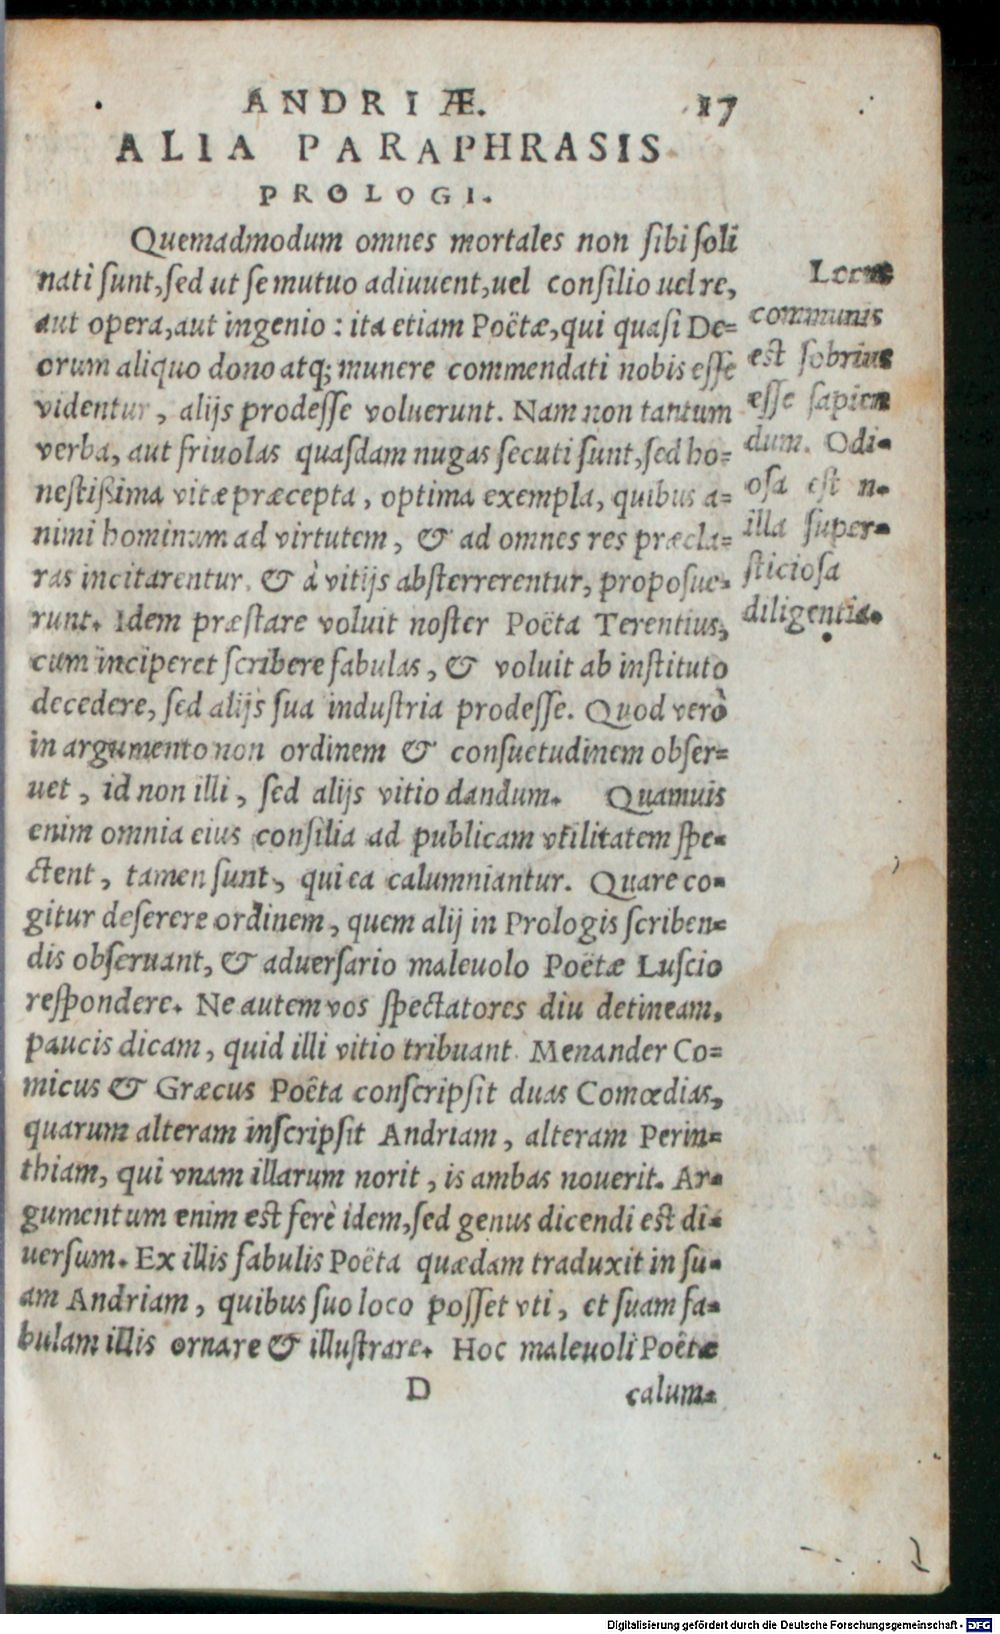 ANDRIÆ. 17
ALIA PARAPHRASIS
PROLOGI.
Quemadmodum omnes mortales non sibi soli
nati sunt, sed ut se mutuo adiuuent, uel consilio uel re,
aut opera, aut ingenio : ita etiam Poëtæ, qui quasi De=
orum aliquo dono atq; munere commendati nobis esse
videntur, alijs prodesse voluerunt. Nam non tantum
verba, aut friuolas quasdam nugas secuti sunt, sed ho=
nestißima vitæ præcepta, optima exempla, quibus a=
nimi hominum ad virtutem, & ad omnes res præcla=
ras incitarentur, & à vitijs absterrerentur, proposue=
runt. Idem præstare voluit noster Poëta Terentius,
cum inciperet scribere fabulas, & voluit ab instituto
decedere, sed alijs sua industria prodesse. Quod verò
in argumento non ordinem & consuetudinem obser=
uet, id non illi, sed alijs vitio dandum. Quamuis
enim omnia eius consilia ad publicam vtilitatem spe=
ctent, tamen sunt, qui ea calumniantur. Quare co=
gitur deserere ordinem, quem alij in Prologis scriben=
dis obseruant, & aduersario maleuolo Poëtæ Luscio
respondere. Ne autem vos spectatores diu detineam,
paucis dicam, quid illi vitio tribuant. Menander Co=
micus & Græcus Poëta conscripsit duas Comœdias,
quarum alteram inscripsit Andriam, alteram Perin=
thiam, qui vnam illarum norit, is ambas nouerit. Ar=
gumentum enim est ferè idem, sed genus dicendi est di=
uersum. Ex illis fabulis Poëta quædam traduxit in su=
am Andriam, quibus suo loco posset vti, et suam fa=
bulam illis ornare & illustrare. Hoc maleuoli Poëtæ
D calum=
Locus
communis
est sobrius
esse sapien
dum. Odi=
osa est n.
illa super=
sticiosa
diligentia.
Digitalisierung gefördert durch die Deutsche Forschungsgemeinschaft - DFG